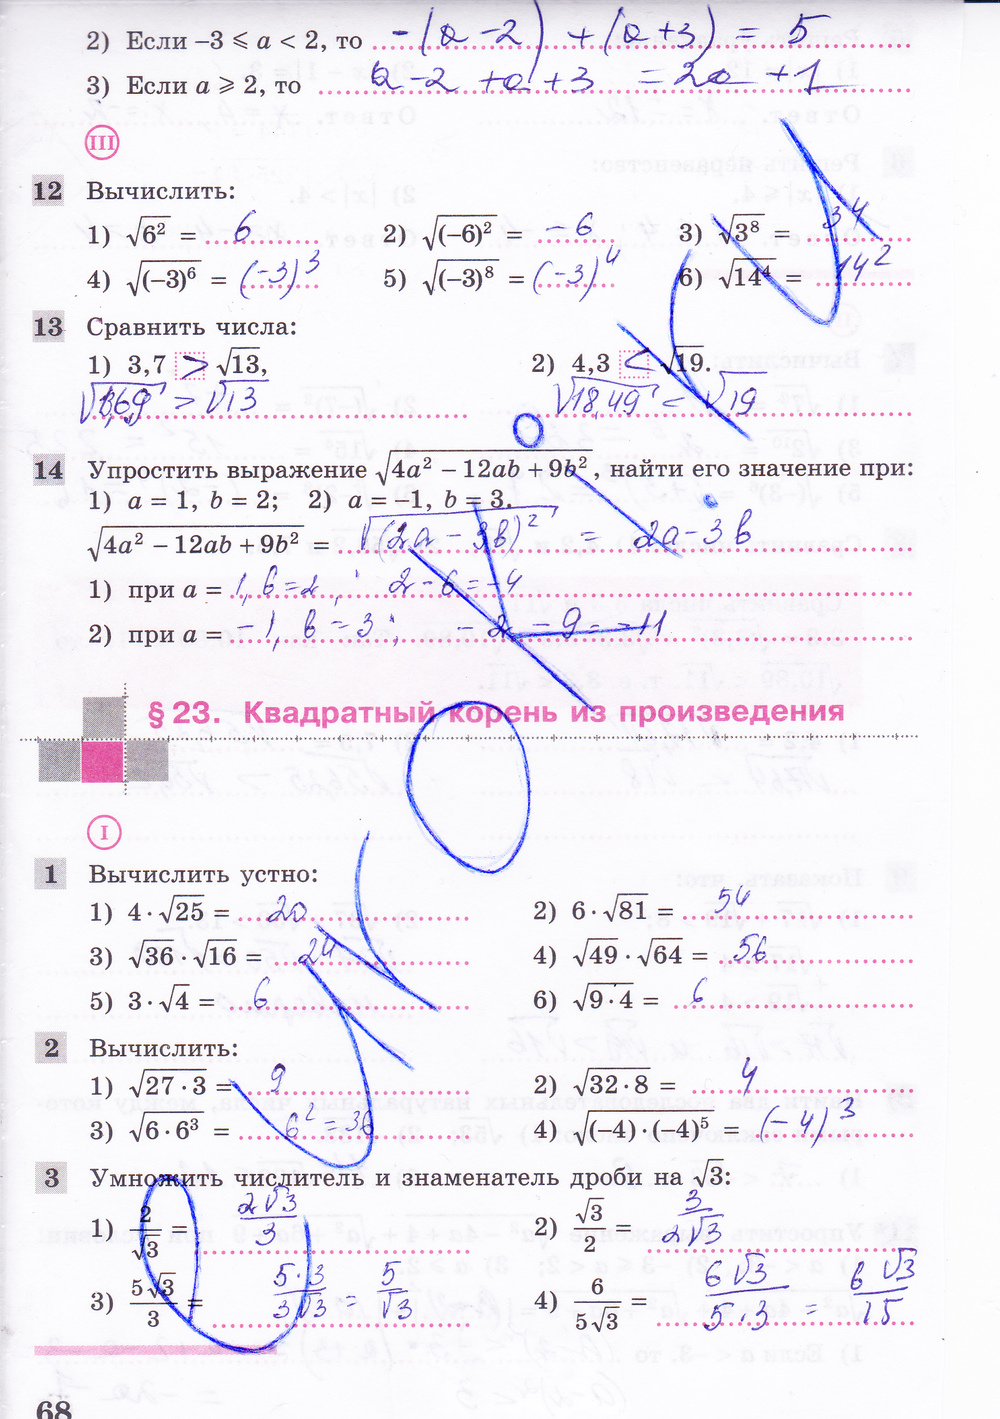 2) Если –3 ⩽ a < 2, то -(a-2) + (a+3) = 5
3) Если a ⩾ 2, то a-2 +a+3 =2a+1
III
12 Вычислить:
1) √6² = 6 2) √(–6)² = -6 3) √3⁸ = 3⁴
4) √(–3)⁶ = (-3)³ 5) √(–3)⁸ = (-3)⁴ 6) √14⁴ = 14²
13 Сравнить числа:
1) 3,7 > √13, 2) 4,3 < √19.
> √13 √18,49 < √19
14 Упростить выражение √4a² – 12ab + 9b², найти его значение при:
1) a = 1, b = 2; 2) a = –1, b = 3.
√4a² – 12ab + 9b² = √(2a-3b)² = 2a-3b
1) при a = 1, b=2; 2-6=-4
2) при a = -1, b=3; -2-9=-11
§ 23. Квадратный корень из произведения
I
1 Вычислить устно:
1) 4·√25 = 20 2) 6·√81 = 54
3) √36·√16 = 24 4) √49·√64 = 56
5) 3·√4 = 6 6) √9·4 = 6
2 Вычислить:
1) √27·3 = 9 2) √32·8 = 4
3) √6·6³ = 6²=36 4) √(–4)·(–4)⁵ = (-4)³
3 Умножить числитель и знаменатель дроби на √3:
1) 2/√3 = 2√3/3 2) √3/2 = 3/2√3
3) 5√3/3 = 5·3/3√3 = 5/√3 4) 6/5√3 = 6√3/5·3 = 6√3/15
68